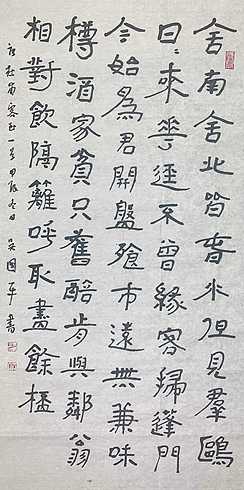 舍南舍北皆春水但見羣鷗
日日來華逕不曾緣客掃蓬門
今始爲君開盤飧市遠無兼味
樽酒家貧只舊醅肯與鄰翁
相對飲隔籬呼取盡餘桮
杜甫客至一首甲辰冬日吳國平書